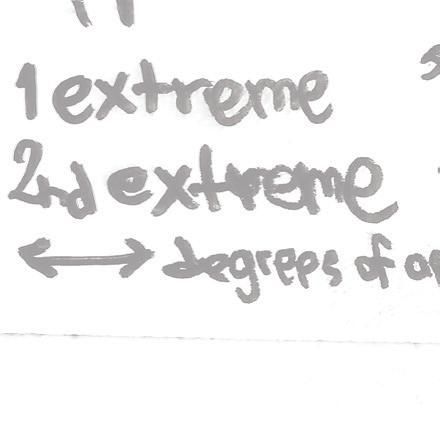 1 extreme
2nd extreme
↔ degrees of